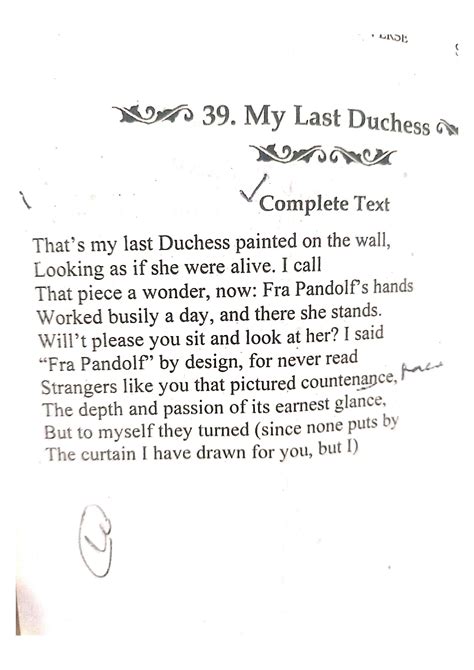 39. My Last Duchess
Complete Text
That's my last Duchess painted on the wall,
Looking as if she were alive. I call
That piece a wonder, now: Fra Pandolf's hands
Worked busily a day, and there she stands.
Will't please you sit and look at her? I said
“Fra Pandolf” by design, for never read
Strangers like you that pictured countenance, face
The depth and passion of its earnest glance,
But to myself they turned (since none puts by
The curtain I have drawn for you, but I)